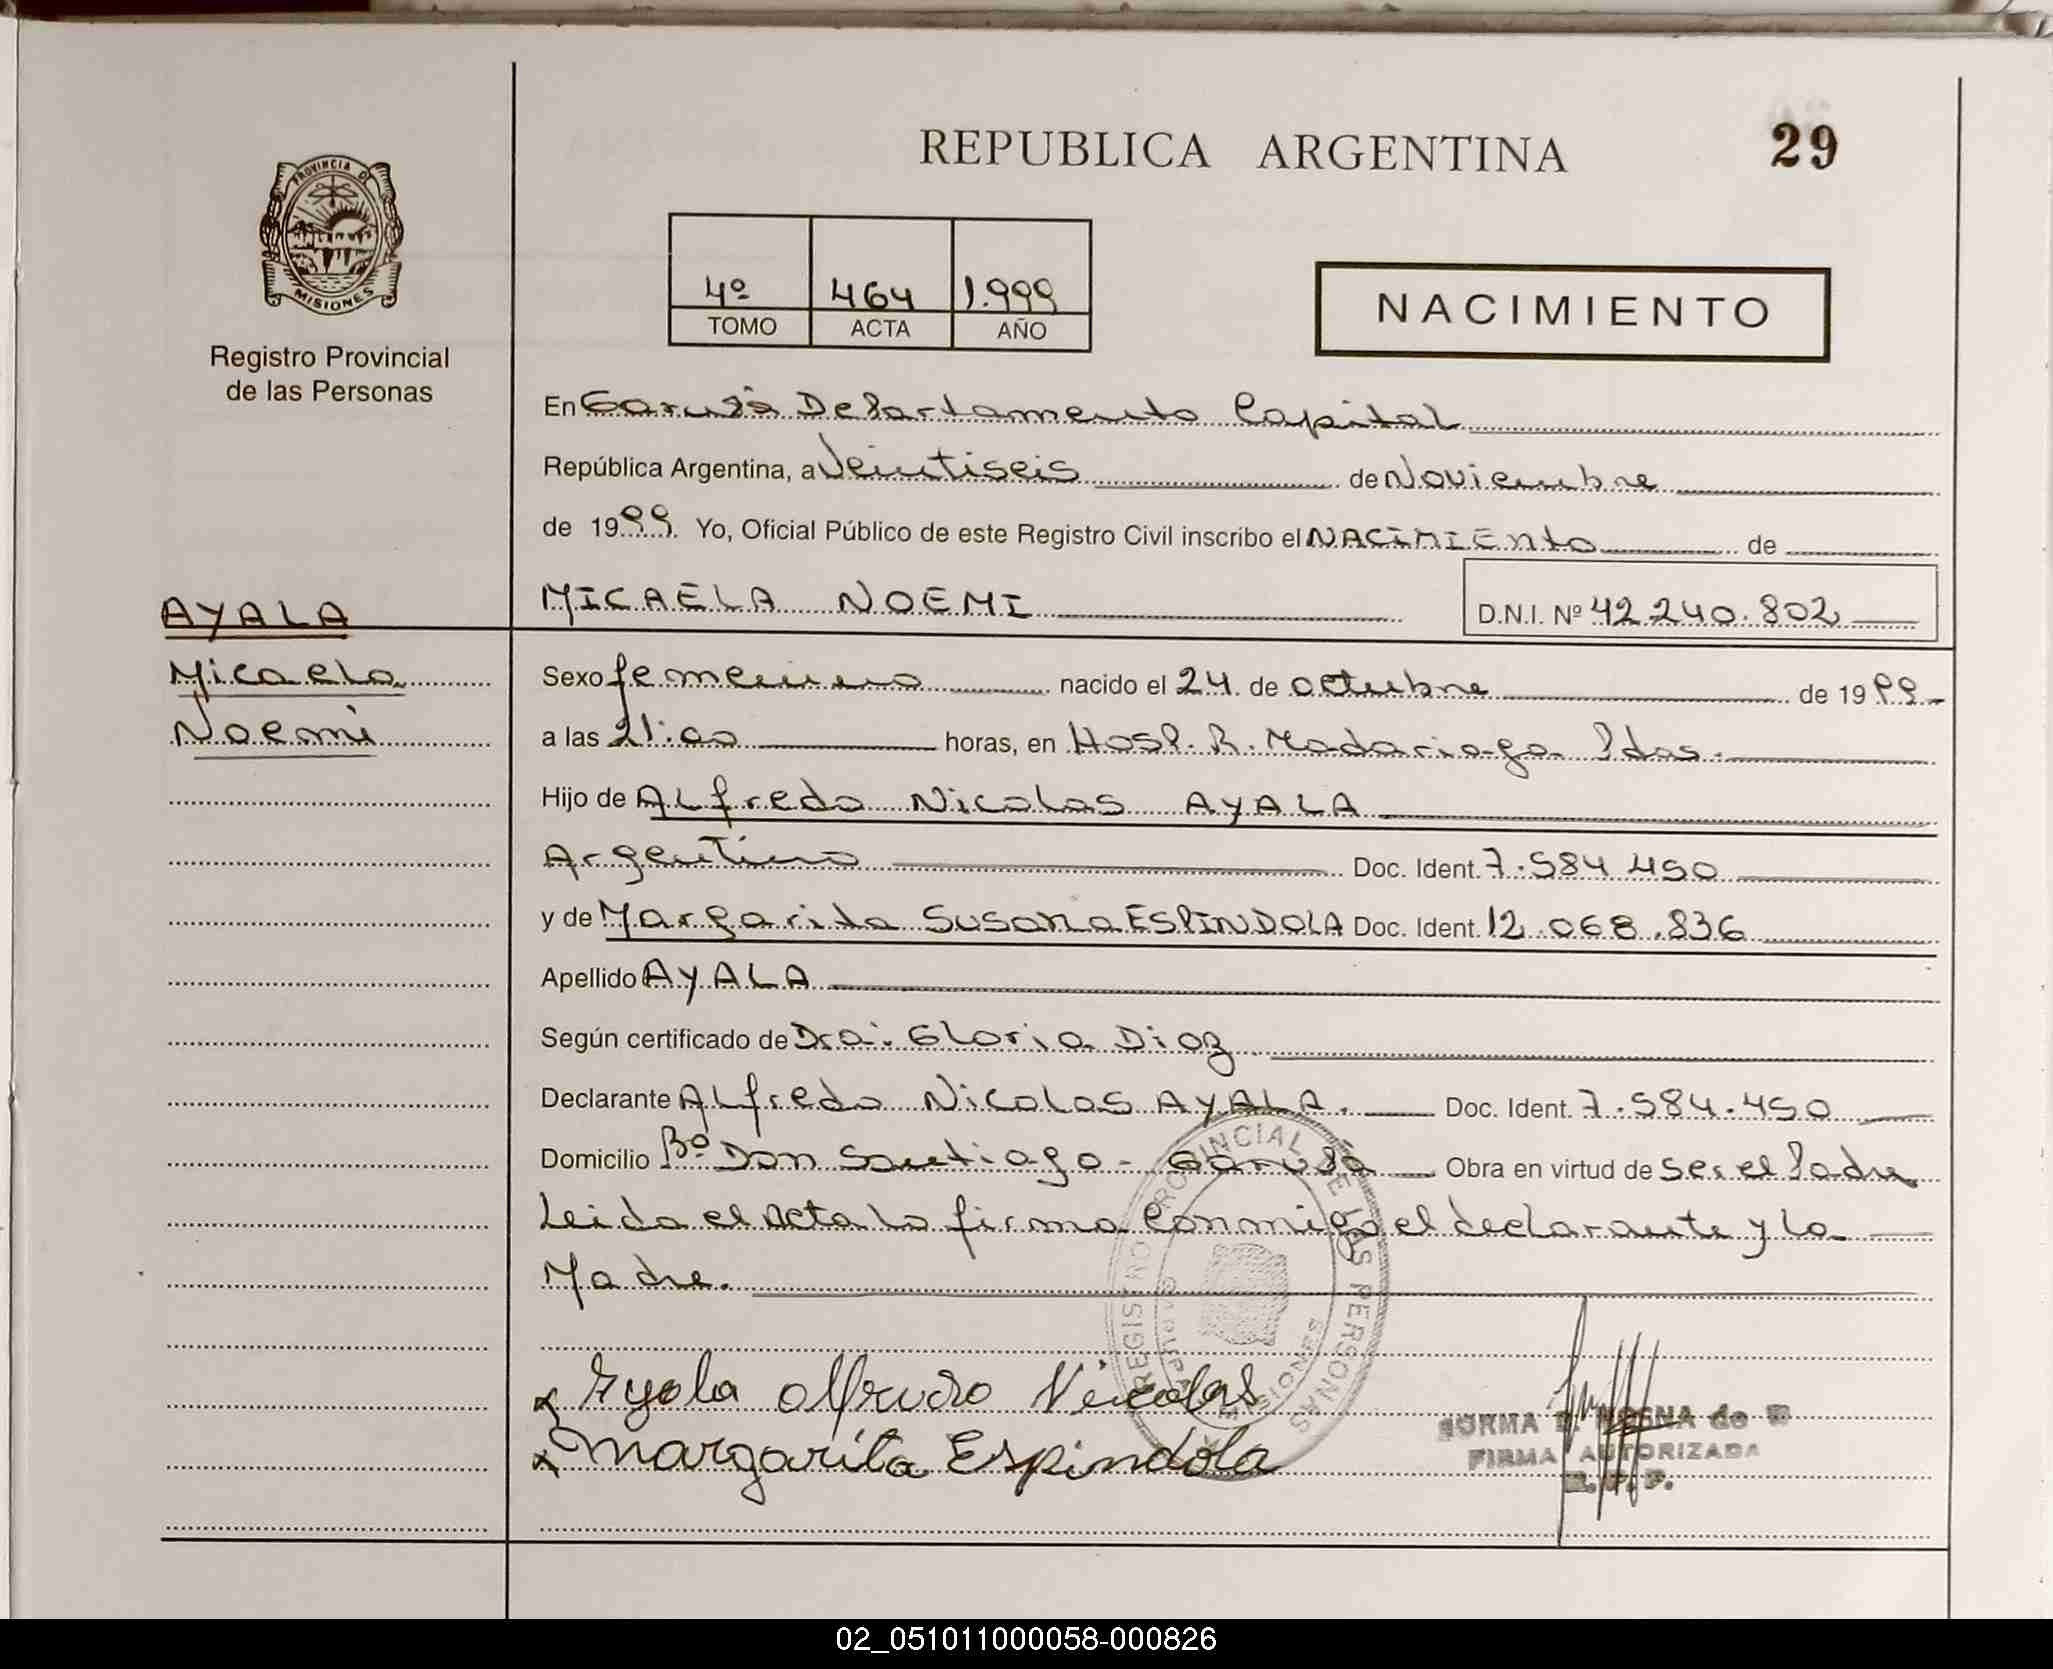 REPUBLICA ARGENTINA
29
PROVINCIA DE
MISIONES
Registro Provincial
de las Personas
4º 464 1.999
TOMO ACTA AÑO
NACIMIENTO
En Garupá Departamento Capital
República Argentina, a Veintiseis de Noviembre
de 1999. Yo, Oficial Público de este Registro Civil inscribo el NACIMIENTO de
MICAELA NOEMI D.N.I. Nº 42.240.802
AYALA
Micaela
Noemi
Sexo femenino nacido el 24 de octubre de 1999
a las 21:00 horas, en Hosp. R. Madariaga Pdas.
Hijo de Alfredo Nicolas AYALA
Argentino Doc. Ident. 7.584.450
y de Margarita Susana ESPINDOLA Doc. Ident. 12.068.836
Apellido AYALA
Según certificado de Dra. Gloria Diaz
Declarante Alfredo Nicolas AYALA. Doc. Ident. 7.584.450
Domicilio Bº Don Santiago - Garupá Obra en virtud de ser el Padre
Leida el Acta la firma conmigo el declarante y la
Madre.
REGISTRO PROVINCIAL DE LAS PERSONAS
MISIONES
Ayala Alfredo Nicolas
Margarita Espindola
NORMA
FIRMA AUTORIZADA
02_051011000058-000826